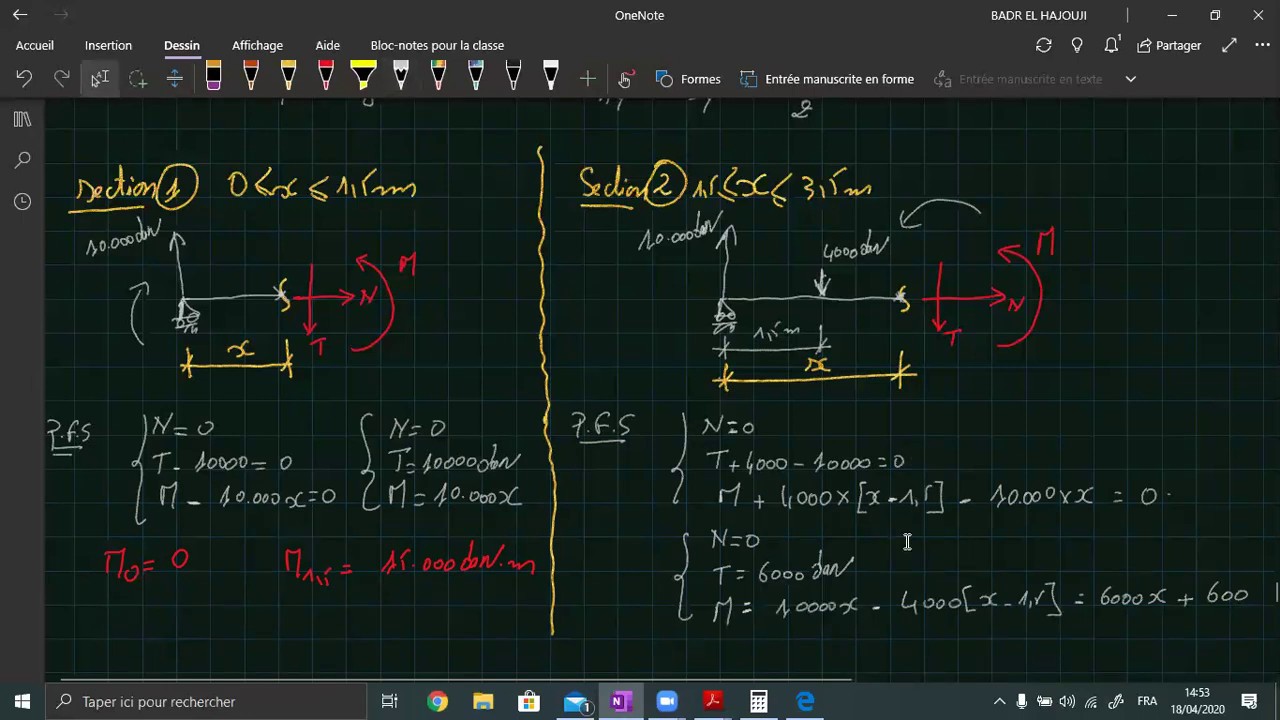 OneNote
BADR EL HAJOUJI
Accueil Insertion Dessin Affichage Aide Bloc-notes pour la classe
Partager
Formes Entrée manuscrite en forme Entrée manuscrite en texte
2
Section 1 0 ≤ x ≤ 1,5m
10.000daN
M
N
T
x
P.F.S
N = 0
T - 10000 = 0
M - 10.000x = 0
N = 0
T = 10000daN
M = 10.000x
M0 = 0 M1,5 = 15.000daN.m
Section 2 1,5 ≤ x ≤ 3,5m
10.000daN
4000daN
M
N
T
1,5m
x
P.F.S
N = 0
T + 4000 - 10000 = 0
M + 4000 × [x - 1,5] - 10.000 × x = 0
N = 0
T = 6000daN
M = 10000x - 4000[x - 1,5] = 6000x + 600
Taper ici pour rechercher
1
FRA
14:53
18/04/2020